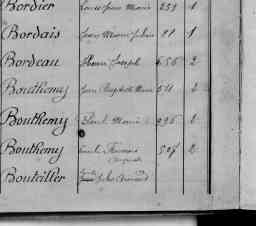 Bordier Louis Jean Marie 259 1
Bordais Jean Marie Julien 91 1
Bordeau Pierre Joseph 656 2
Bouthemy Jean Baptiste Marie 511 2
Bouthemy Paul Marie 296 2
Bouthemy Emile François 507 2
Bouteiller Jules